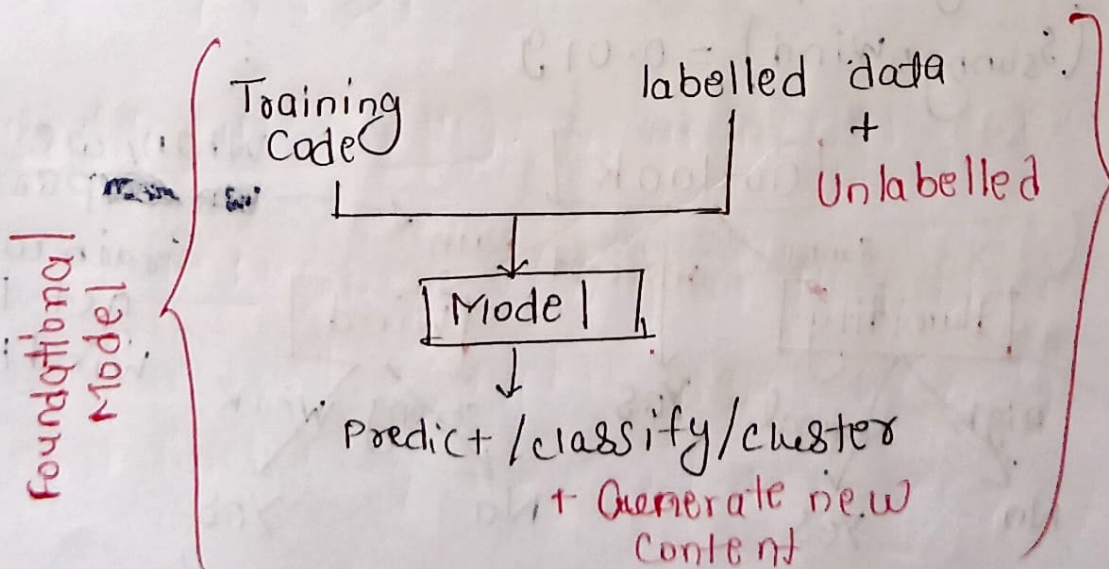 Foundational
Model
Training
Code
labelled data
+
Unlabelled
Model
Predict/classify/cluster
+ Generate new
Content